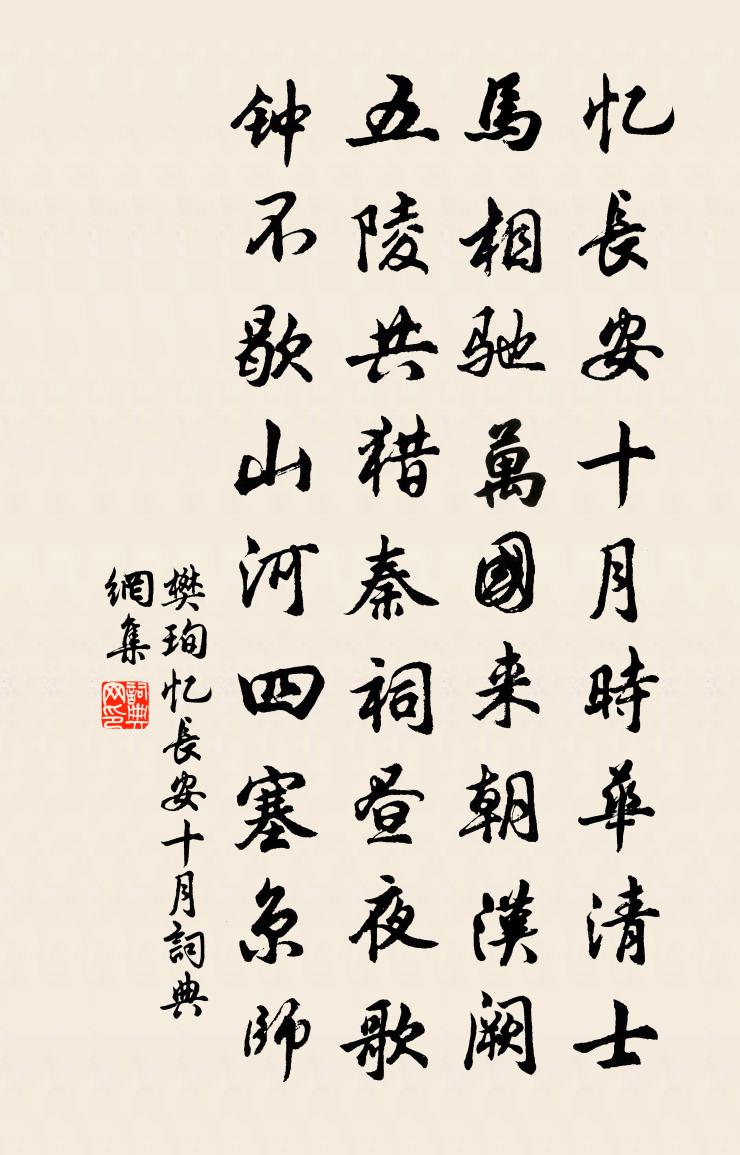 忆長安十月時華清士
馬相馳萬國来朝漢闕
五陵共猎秦祠昼夜歌
钟不歇山河四塞京師
樊珣忆長安十月詞典
網集
詞典网印